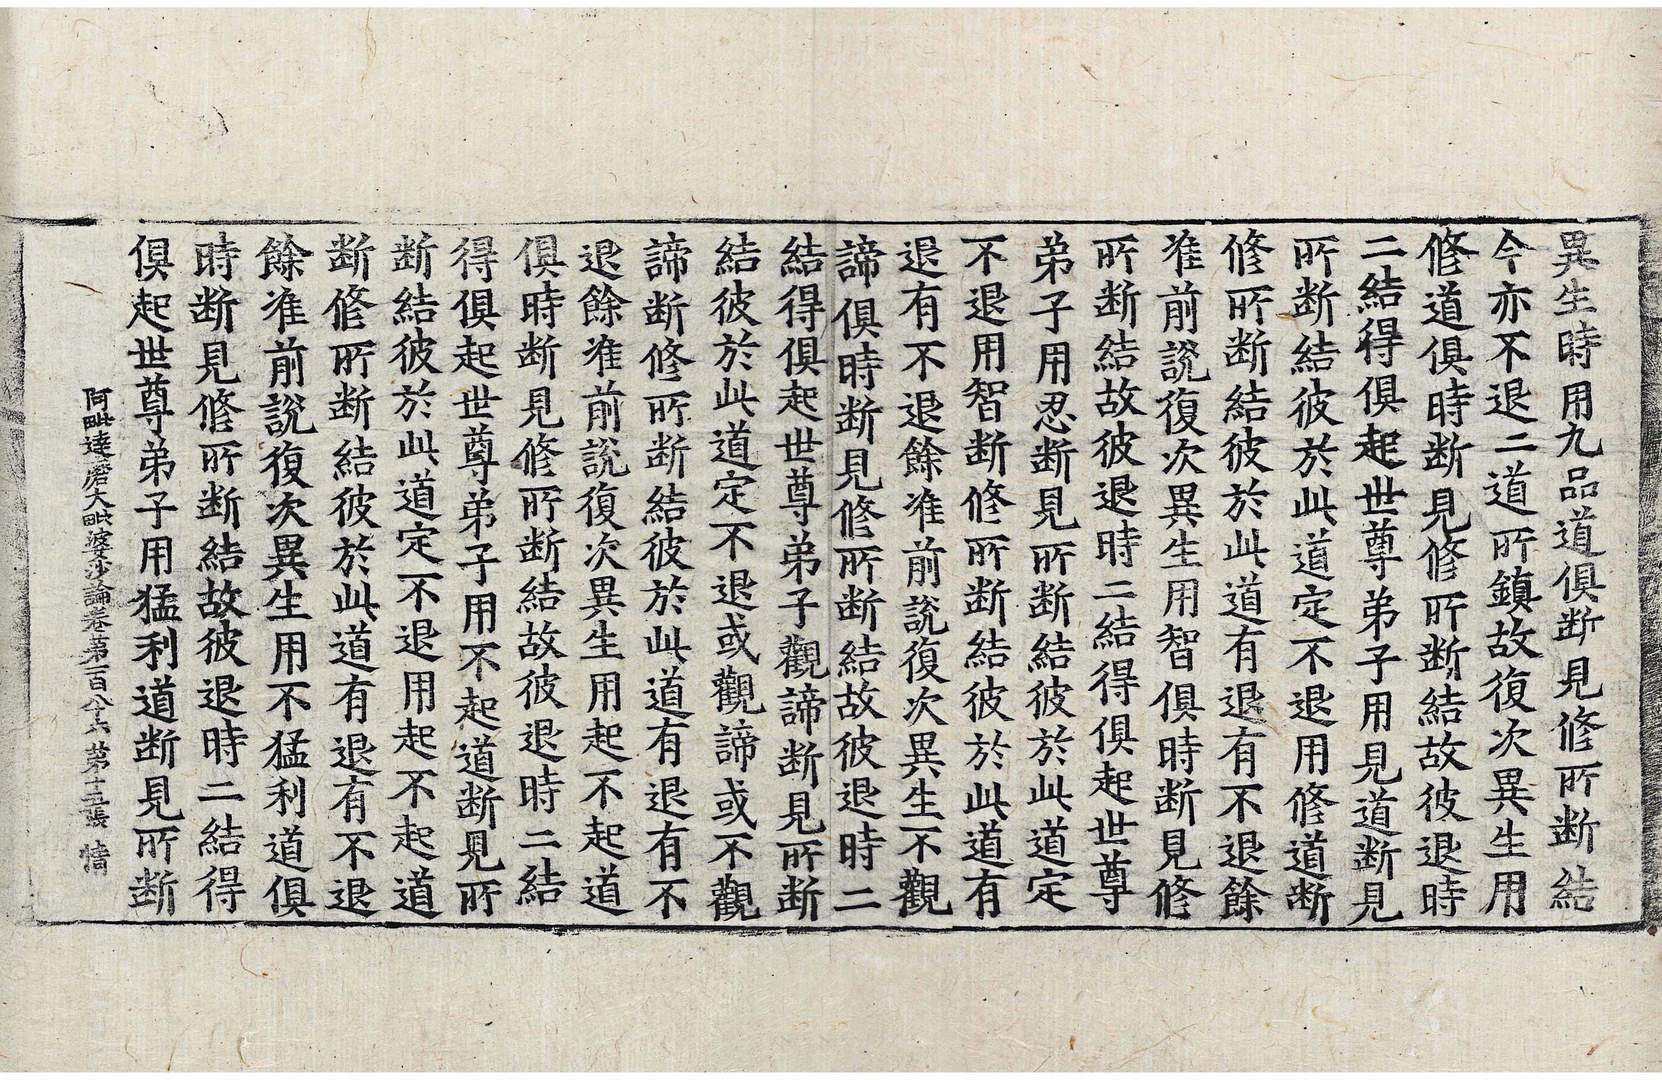 異生時用九品道俱断見修所断結
今亦不退二道所鎮故復次異生用
修道俱時断見修所断結故彼退時
二結得俱起世尊弟子用見道断見
所断結彼於此道定不退用修道断
修所断結彼於此道有退有不退餘
准前說復次異生用智俱時断見修
所断結故彼退時二結得俱起世尊
弟子用忍断見所断結彼於此道定
不退用智断修所断結彼於此道有
退有不退餘准前說復次異生不觀
諦俱時断見修所断結故彼退時二
結得俱起世尊弟子觀諦断見所断
結彼於此道定不退或觀諦或不觀
諦断修所断結彼於此道有退有不
退餘准前說復次異生用起不起道
俱時断見修所断結故彼退時二結
得俱起世尊弟子用不起道断見所
断結彼於此道定不退用起不起道
断修所断結彼於此道有退有不退
餘准前說復次異生用不猛利道俱
時断見修所断結故彼退時二結得
俱起世尊弟子用猛利道断見所断
阿毗達磨大毗婆沙論卷第一百八十六 第十五張 情